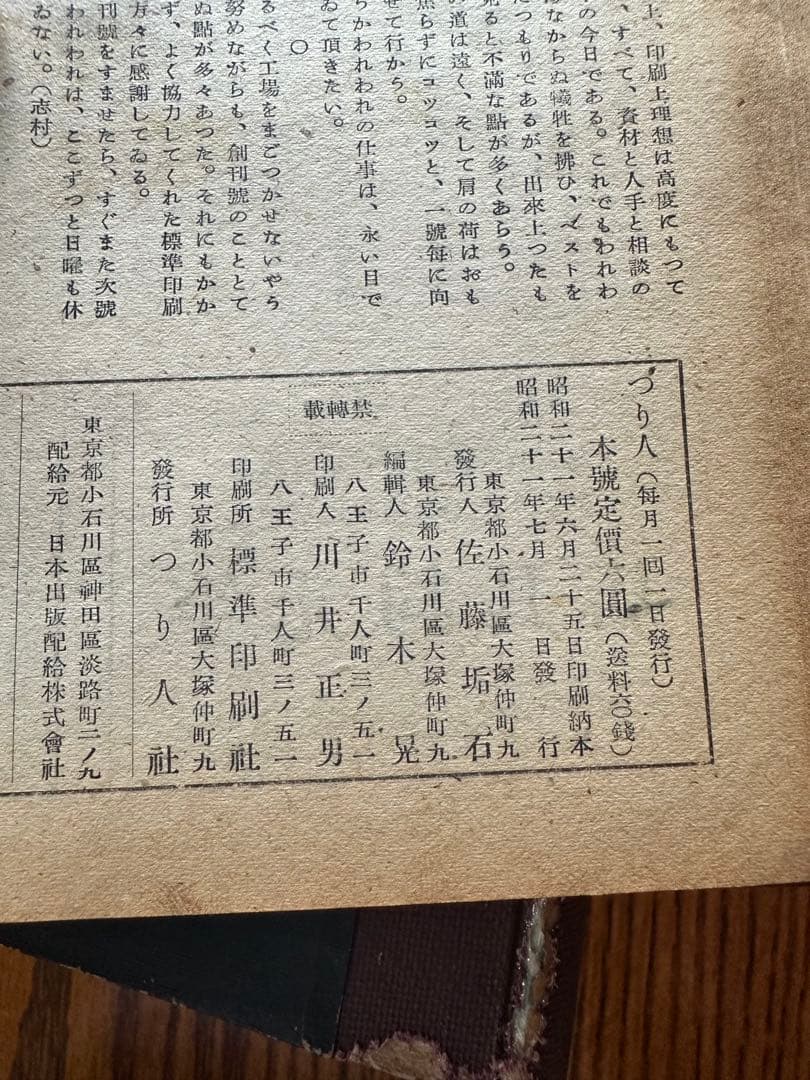 上、印刷上理想は高度にもつて
、すべて、資材と人手と相談の
の今日である。これでもわれわ
なからぬ犠牲を拂ひ、ベストを
たつもりであるが、出來上つたも
見ると不滿な點が多くあらう。
の道は遠く、そして肩の荷はおも
焦らずにコツコツと、一號每に向
せて行から。
らかわれわれの仕事は、永い日で
ゐて頂きたい。
○
るべく工場をまごつかせないやう
努めながらも、創刊號のこととて
ぬ點が多々あつた。それにもかか
ず、よく協力してくれた標準印刷
方々に感謝してゐる。
刊號をすませたら、すぐまた次號
われわれは、ここずつと日曜も休
ゐない。（志村）
つり人（每月一回一日發行）
本號定價六圓（送料六〇錢）
昭和二十一年六月二十五日印刷納本
昭和二十一年七月一日發行
東京都小石川區大塚仲町九
發行人 佐藤垢石
東京都小石川區大塚仲町九
編輯人 鈴木晃
禁轉載
八王子市千人町三ノ五一
印刷人 川井正男
八王子市千人町三ノ五一
印刷所 標準印刷社
東京都小石川區大塚仲町九
發行所 つり人社
東京都小石川區神田區淡路町二ノ九
配給元 日本出版配給株式會社